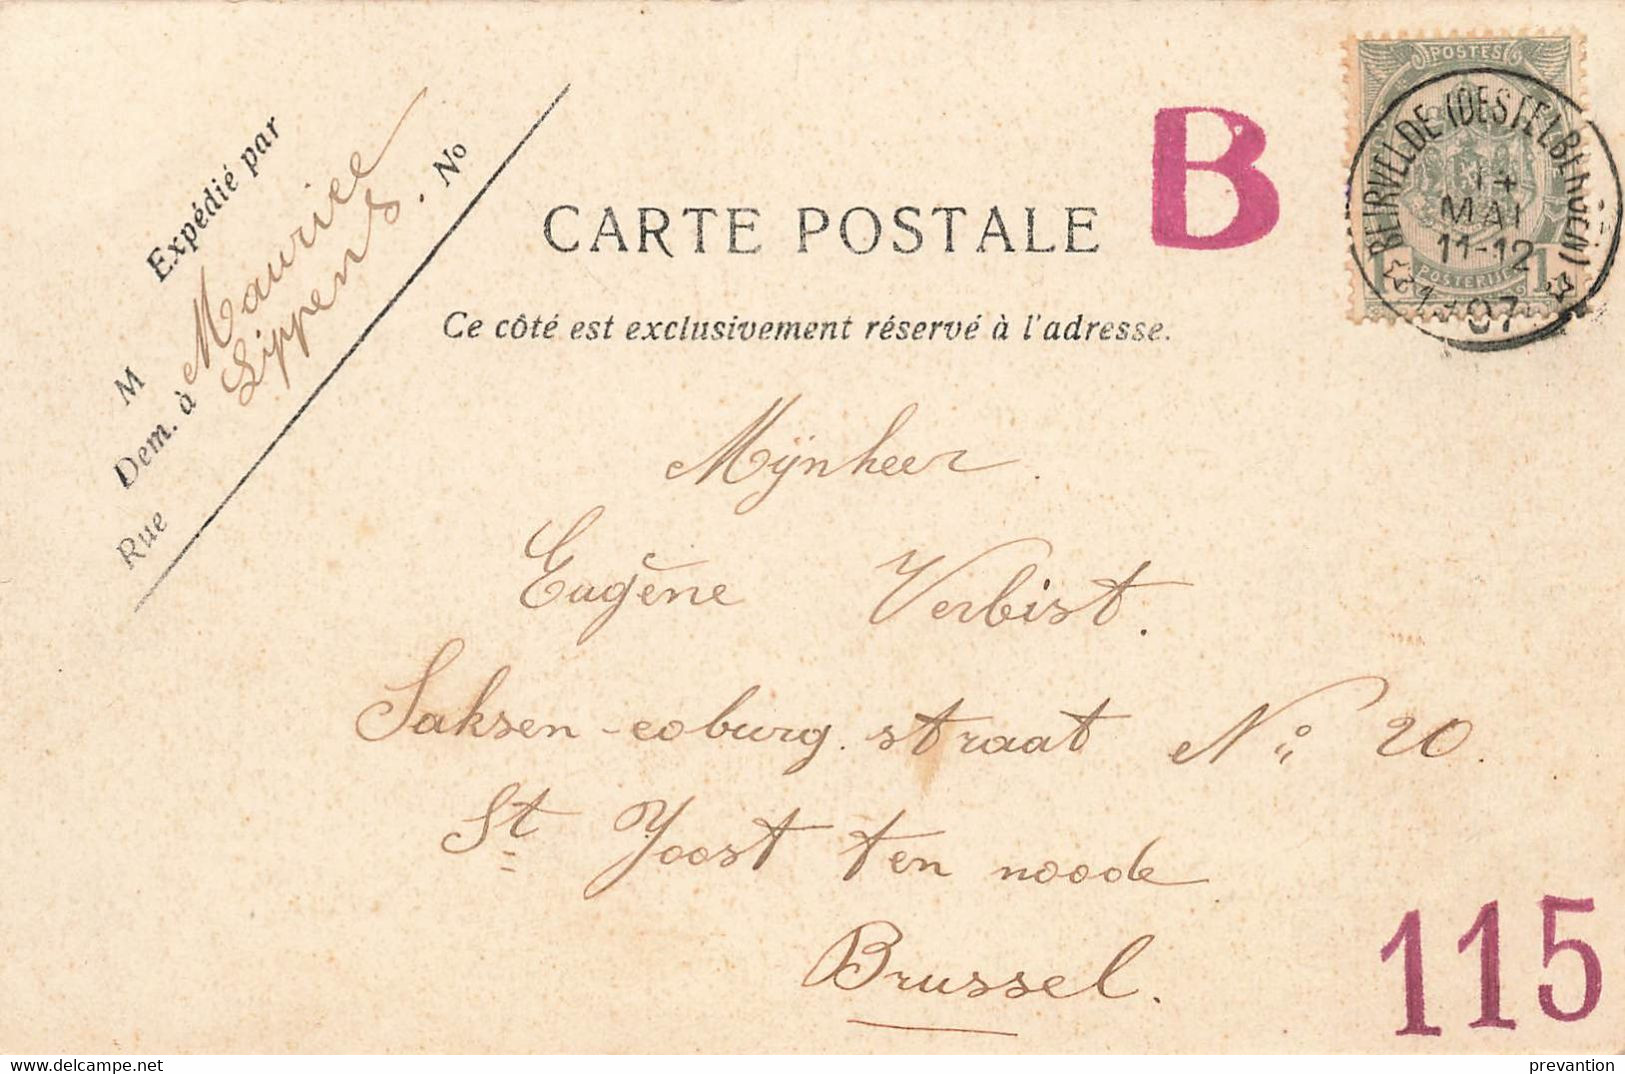 Expédié par
M Maurice
Lippens.
Dem. à
Rue
No
CARTE POSTALE
B
Ce côté est exclusivement réservé à l'adresse.
POSTES
1 POSTERIJEN 1
BEIRVELDE (DESTELBERGEN)
14
MAI
11-12
1907
Mÿnheer.
Eugène Verbist.
Saksen-coburg. straat No 20.
St Joost ten noode
Brussel.
115
delcampe.net
prevantion